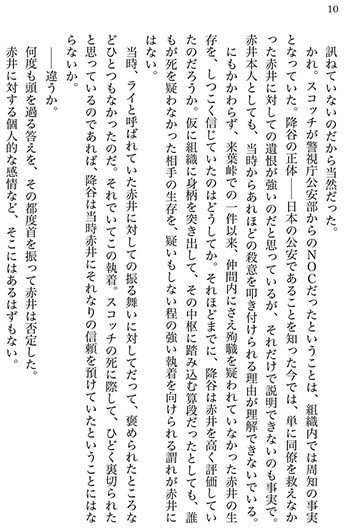 10
訊ねていないのだから当然だった。
かれ。スコッチが警視庁公安部からのNOCだったということは、組織内では周知の事実
となっていた。降谷の正体――日本の公安であることを知った今では、単に同僚を救えなか
った赤井に対しての遺恨が強いのだと思っているが、それだけで説明できないのも事実で。
赤井本人としても、当時からあれほどの殺意を叩き付けられる理由が理解できないでいる。
にもかかわらず、来葉峠での一件以来、仲間内にさえ殉職を疑われていなかった赤井の生
存を、しつこく信じていたのはどうしてか。それほどまでに、降谷は赤井を高く評価してい
たのだろうか。仮に組織に身柄を突き出して、その中枢に踏み込む算段だったとしても、誰
もが死を疑わなかった相手の生存を、疑いもしない程の強い執着を向けられる謂れが赤井に
はない。
当時、ライと呼ばれていた赤井に対しての振る舞いに対してだって、褒められたところな
どひとつもなかったのだ。それでいてこの執着。スコッチの死に際して、ひどく裏切られた
と思っているのであれば、降谷は当時赤井にそれなりの信頼を預けていたということにはな
らないか。
――違うか。
何度も頭を過る答えを、その都度首を振って赤井は否定した。
赤井に対する個人的な感情など、そこにはあるはずもない。